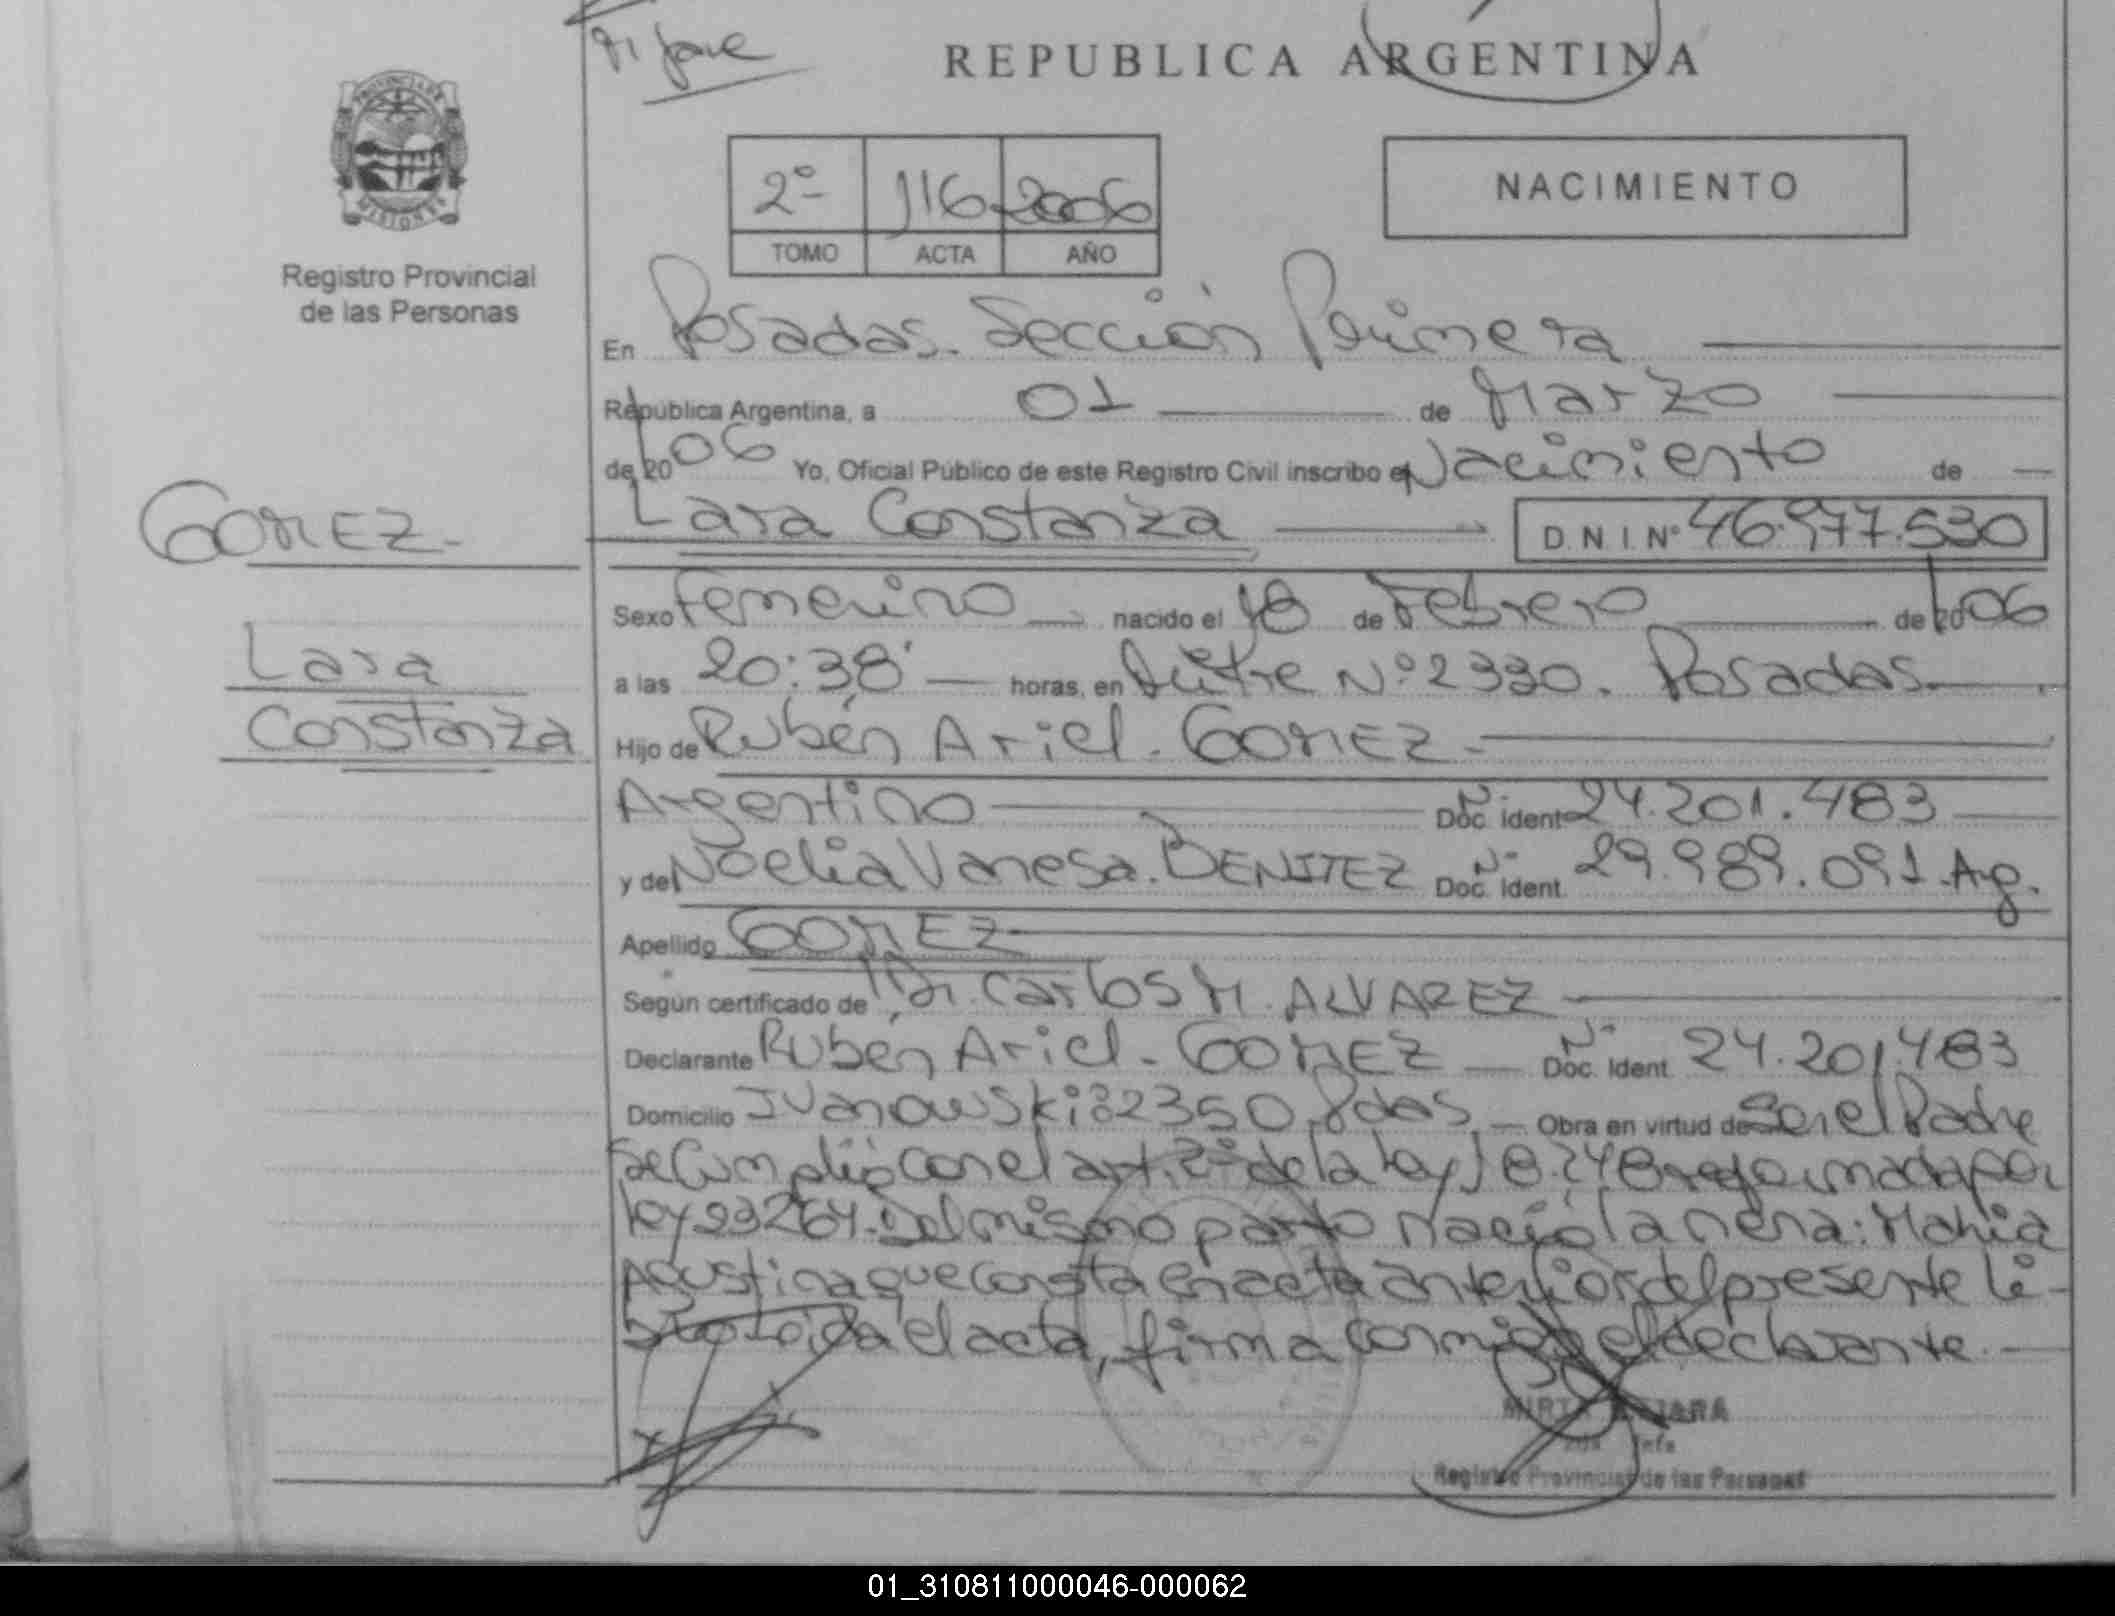 REPUBLICA ARGENTINA
PROVINCIA DE
MISIONES
Registro Provincial
de las Personas
2º
116
2006
TOMO
ACTA
AÑO
NACIMIENTO
En Posadas. Sección Primera
República Argentina, a 01 de Marzo
de 2006 Yo, Oficial Público de este Registro Civil inscribo el Nacimiento de
GOMEZ-
Lara Constanza
D.N.I. Nº 46.977.530
Sexo Femenino nacido el 18 de Febrero de 2006
Lara
Constanza
a las 20:38' horas, en Mitre Nº 2330. Posadas
Hijo de Rubén Ariel. GOMEZ-
Argentino Doc. ident Nº 24.201.483
y de Noelia Vanesa. BENITEZ Doc. ident. Nº 29.989.091. Ag.
Apellido GOMEZ
Según certificado de Dr. Carlos M. ALVAREZ
Declarante Rubén Ariel- GOMEZ Doc. Ident. Nº 24.201.483
Domicilio Ivanowski: 2350. Pdas. Obra en virtud de Ser el Padre
Se Cumplió con el art. 2º de la Ley 18.248 reformada por
ley 23264. Del mismo parto nació la nena: María
Agustina que consta en acta anterior del presente li-
bro Leída el acta, firma conmigo el declarante.
MIRTA
2da Jefa
Registro Provincial de las Personas
01_310811000046-000062